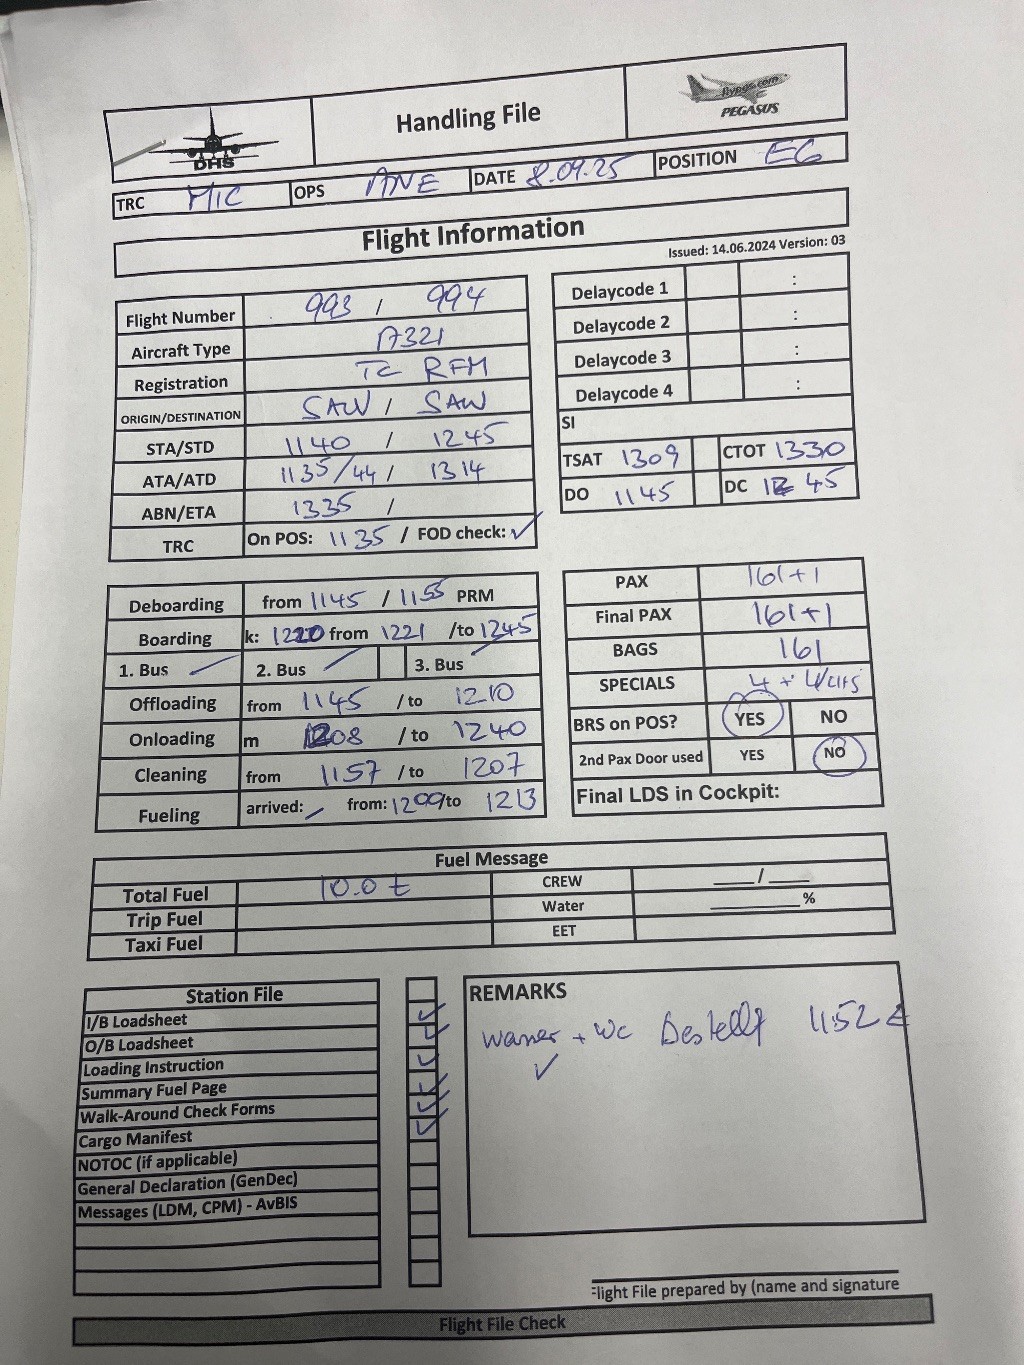 DHS
Handling File
flypgs.com
PEGASUS
TRC MIC OPS ANE DATE 8.09.25 POSITION E6
Flight Information
Issued: 14.06.2024 Version: 03
Flight Number 993 / 994
Aircraft Type A321
Registration TC RFM
ORIGIN/DESTINATION SAW / SAW
STA/STD 1140 / 1245
ATA/ATD 1135/44 / 1314
ABN/ETA 1335 /
TRC On POS: 1135 / FOD check: ✓
Delaycode 1 :
Delaycode 2 :
Delaycode 3 :
Delaycode 4 :
SI
TSAT 1309 CTOT 1330
DO 1145 DC 1245
Deboarding from 1145 / 1155 PRM
Boarding k: 1220 from 1221 /to 1245
1. Bus 2. Bus 3. Bus
Offloading from 1145 / to 1210
Onloading m 1208 / to 1240
Cleaning from 1157 / to 1207
Fueling arrived: from: 1209/to 1213
PAX 161+1
Final PAX 161+1
BAGS 161
SPECIALS 4 +
BRS on POS? YES NO
2nd Pax Door used YES NO
Final LDS in Cockpit:
Fuel Message
Total Fuel 10.0 t CREW ___/___
Trip Fuel Water ______%
Taxi Fuel EET
Station File
I/B Loadsheet ✓
O/B Loadsheet ✓
Loading Instruction ✓
Summary Fuel Page ✓
Walk-Around Check Forms ✓
Cargo Manifest ✓
NOTOC (if applicable)
General Declaration (GenDec)
Messages (LDM, CPM) - AvBIS
REMARKS
Wasser + WC Bestellt 11:52
✓
Flight File prepared by (name and signature
Flight File Check